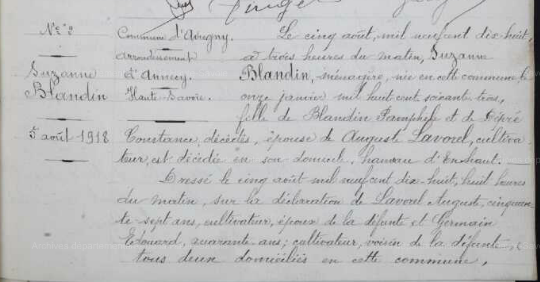 N° 2
Suzanne
Blandin
5 août 1918
Commune d'
arrondissement
d'Annecy
Haute-Savoie.
Le cinq août, mil neuf cent dix-huit,
à trois heures du matin, Suzanne
Blandin, ménagère, née en cette commune le
onze janvier mil huit cent soixante trois,
fille de Blandin et de
Constance, décédés, épouse de Auguste Lavorel, cultiva-
teur, est décédée en son domicile, hameau d'
Dressé le cinq août mil neuf cent dix-huit, huit heures
du matin, sur la déclaration de Lavorel Auguste, cinquan-
te sept ans, cultivateur, époux de la défunte et Germain
Edouard, quarante ans, cultivateur, voisin de la défunte,
tous deux domiciliés en cette commune,